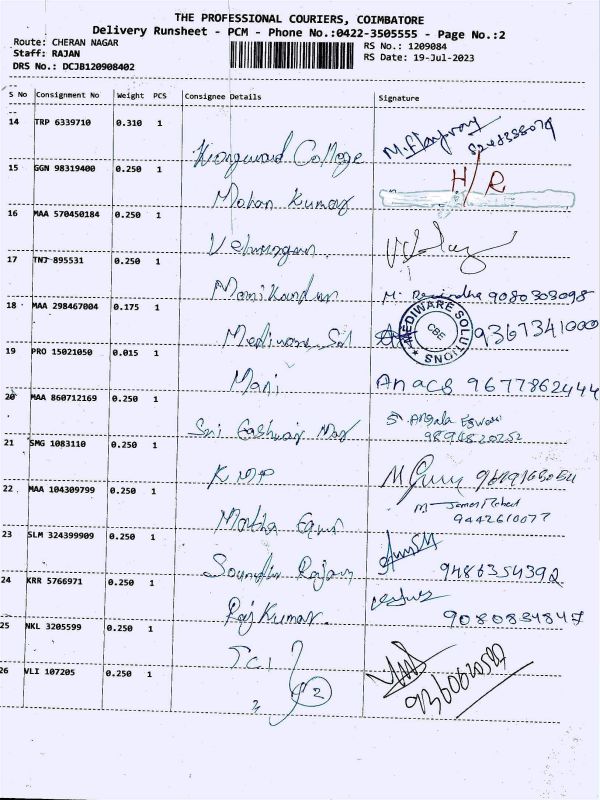 THE PROFESSIONAL COURIERS, COIMBATORE
Delivery Runsheet - PCM - Phone No.:0422-3505555 - Page No.:2
Route: CHERAN NAGAR RS No.: 1209084
Staff: RAJAN RS Date: 19-Jul-2023
DRS No.: DCJB120908402
S No Consignment No Weight PCS Consignee Details Signature
14 TRP 6339710 0.310 1
Kongunad College
15 GGN 98319400 0.250 1 H/R
Mohan Kumar
16 MAA 570450184 0.250 1
Velmurugan
17 TNJ 895531 0.250 1
Manikandan M. 9080303098
18 MAA 298467004 0.175 1 MEDIWARE SOLUTIONS CBE
Mediware Sol 9367341000
19 PRO 15021050 0.015 1
Mani 9677862444
20 MAA 860712169 0.250 1
Sri Eashwar 9894820252
21 SMG 1083110 0.250 1
KMP
22 MAA 104309799 0.250 1
9442610077
23 SLM 324399909 0.250 1
Soundar Rajan 9486354392
24 KRR 5766971 0.250 1
Raj Kumar. 9080834847
25 NKL 3205599 0.250 1
TCI
26 VLI 107205 0.250 1
2